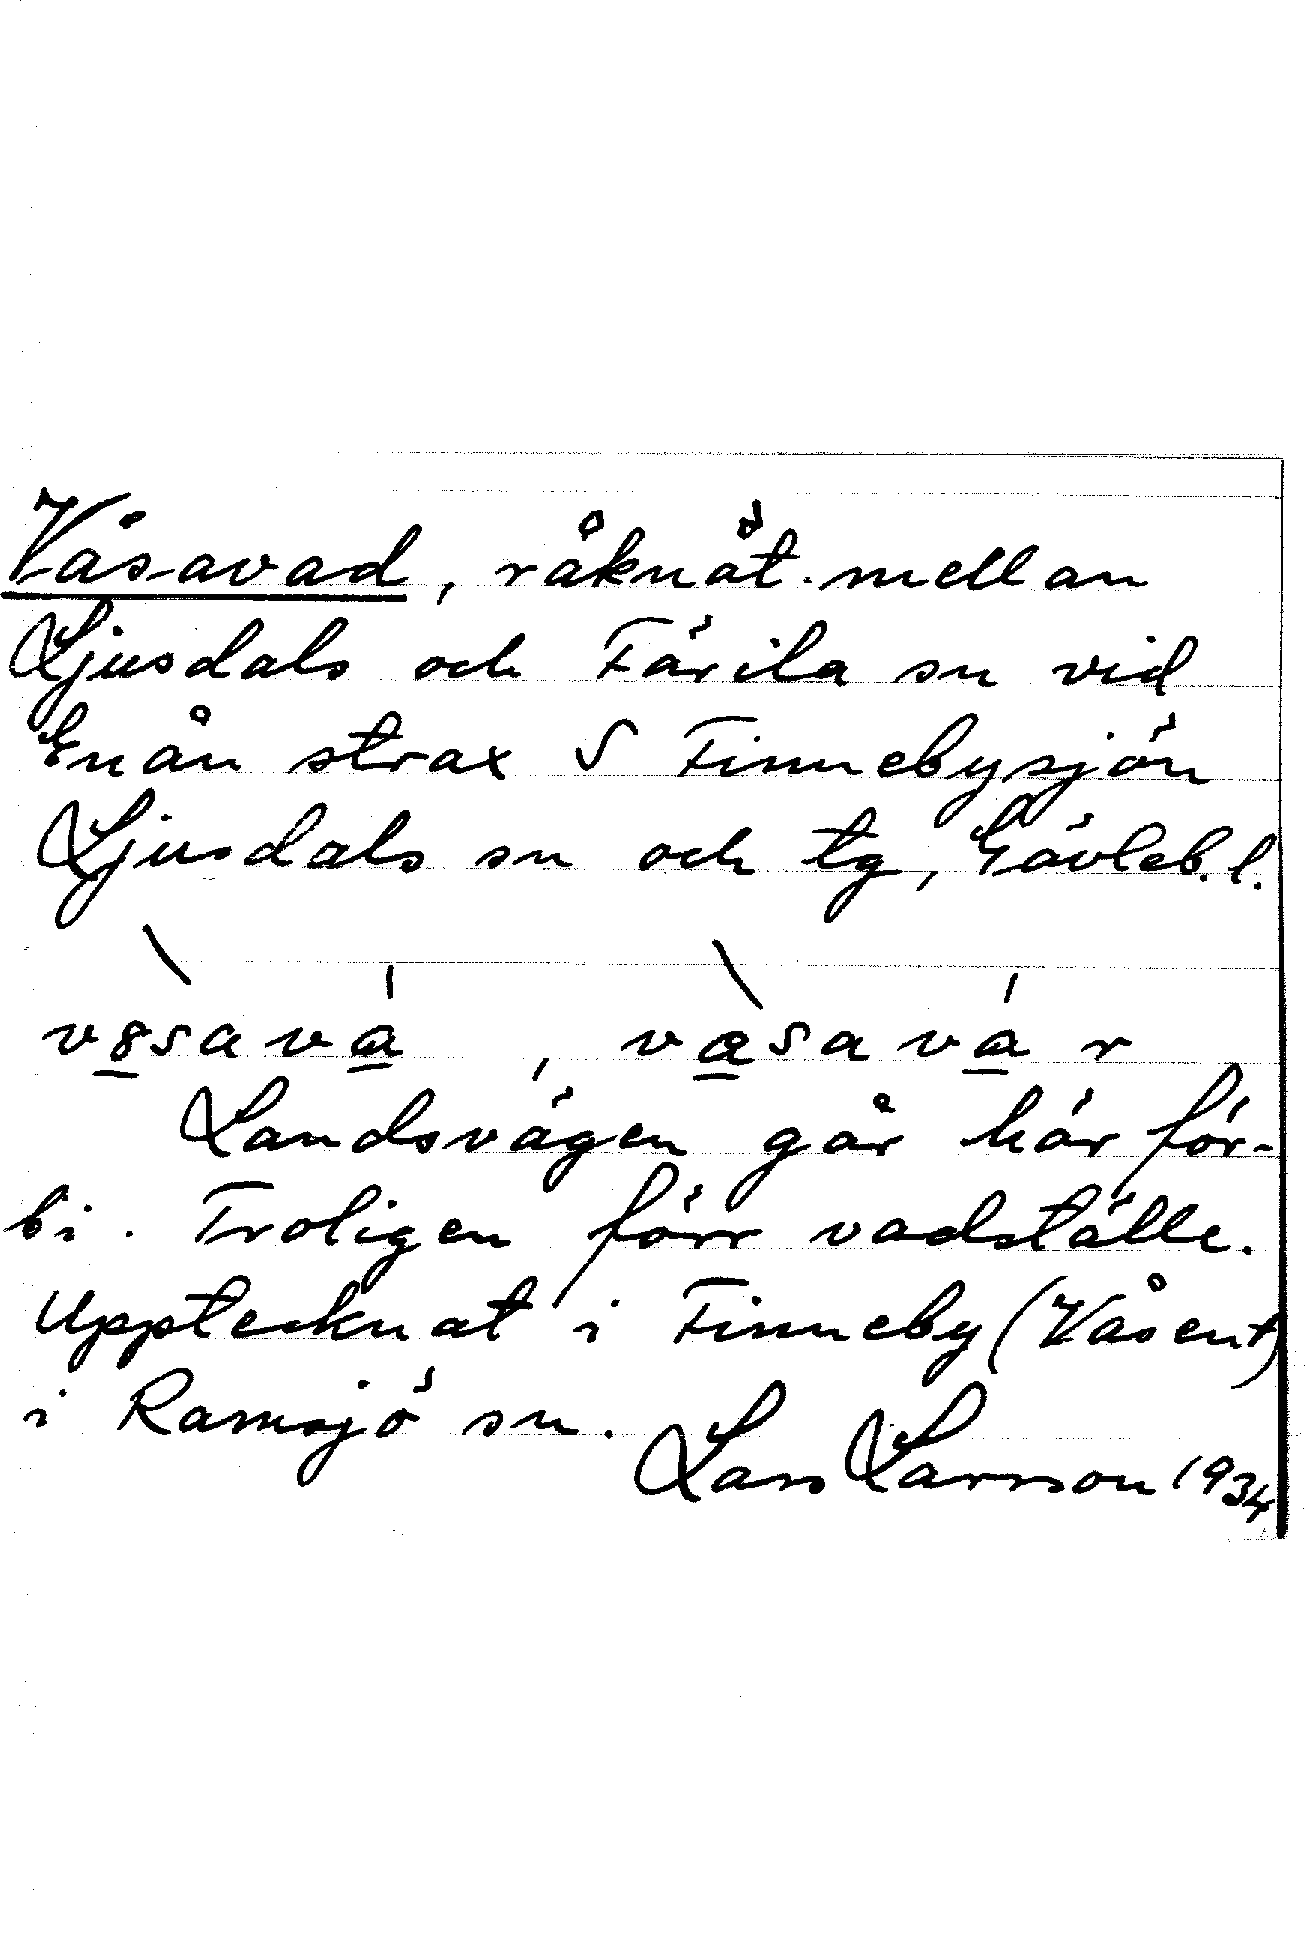 Våsavad, råknåt. mellan
Ljusdals och Färila sn vid
Enån strax S Finnebysjön
Ljusdals sn och tg, Gävleb. l.
v8savá, vasavár
Landsvägen går här för-
bi. Troligen förr vadställe.
Upptecknat i Finneby (Våsent)
i Ramsjö sn.
Lars Larsson 1934